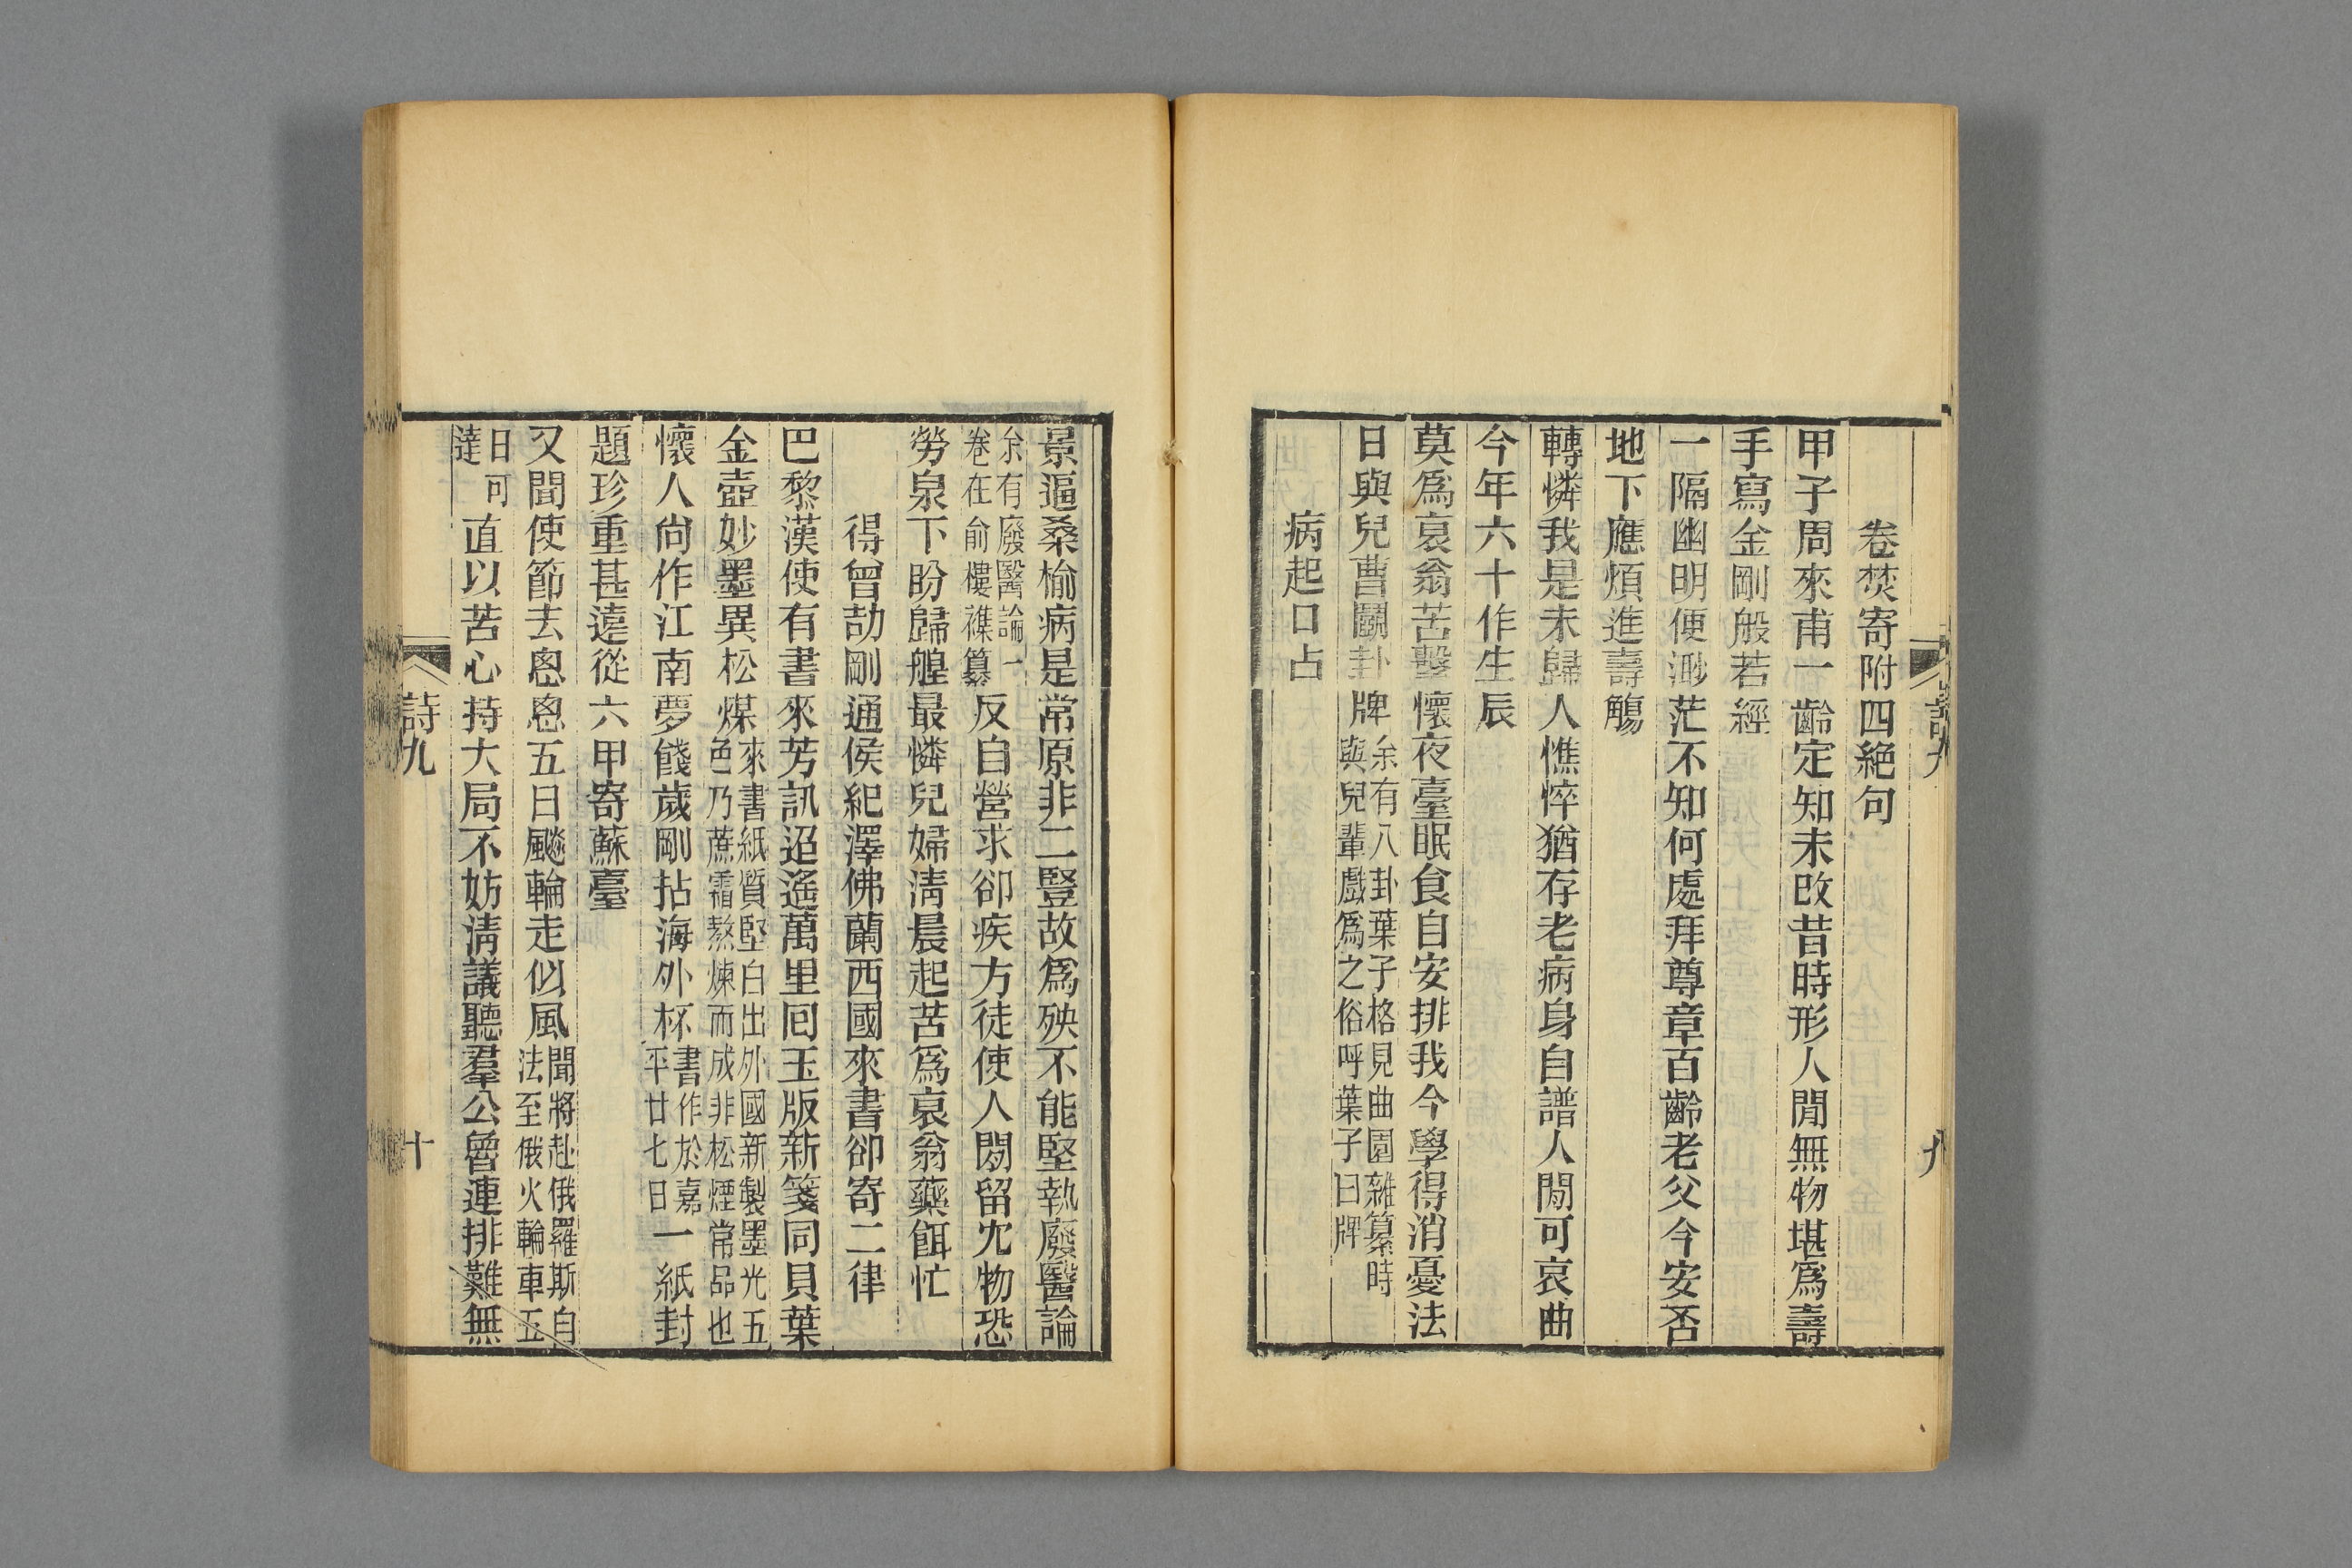 卷焚寄附四絕句
甲子周來甫一齡定知未改昔時形人閒無物堪爲壽
手寫金剛般若經
一隔幽明便渺茫不知何處拜尊章百齡老父今安否
地下應煩進壽觴
轉憐我是未歸人憔悴猶存老病身自譜人閒可哀曲
今年六十作生辰
莫爲哀翁苦鑿懷夜臺眠食自安排我今學得消憂法
日與兒曹鬭卦牌余有八卦葉子格見曲園雜纂時
與兒輩戲爲之俗呼葉子曰牌
病起口占
詩九
九
景逼桑榆病是常原非二豎故爲殃不能堅執廢醫論
余有廢醫論一
卷在俞樓襍纂反自營求卻疾方徒使人閒留宂物恐
勞泉下盼歸艎最憐兒婦淸晨起苦爲哀翁藥餌忙
得曾劼剛通侯紀澤佛蘭西國來書卻寄二律
巴黎漢使有書來芳訊迢遙萬里囘玉版新箋同貝葉
金壺妙墨異松煤來書紙質堅白出外國新製墨光五
色乃蔗霜熬煉而成非松煙常品也
懷人尙作江南夢餞歲剛拈海外杯書作於嘉
平廿七日一紙封
題珍重甚遠從六甲寄蘇臺
又聞使節去悤悤五日飈輪走似風聞將赴俄羅斯自
法至俄火輪車五
日可
達直以苦心持大局不妨淸議聽羣公魯連排難無
詩九
十